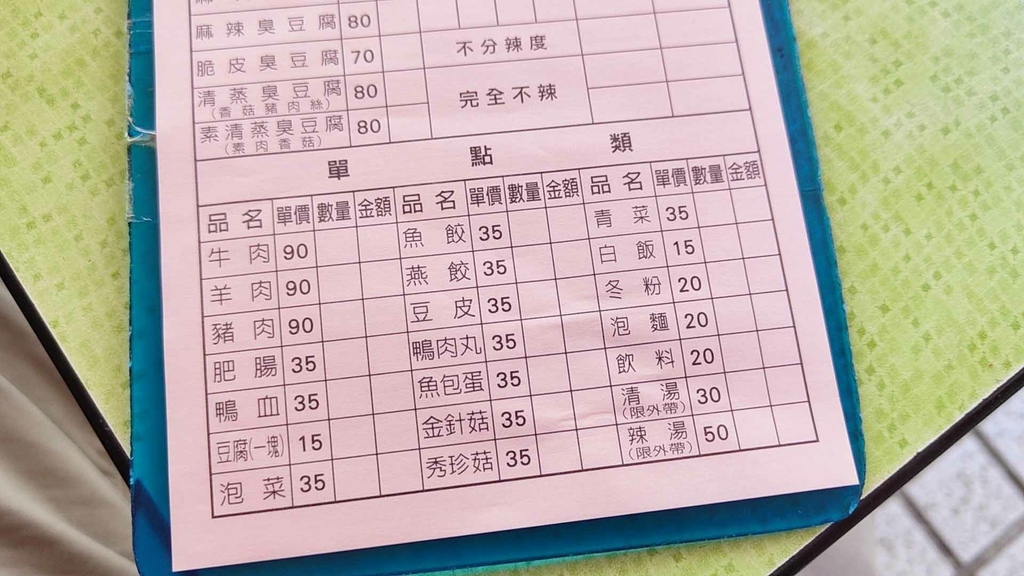 麻辣臭豆腐 80
脆皮臭豆腐 70 不分辣度
清蒸臭豆腐 80
(香菇豬肉絲)
完全不辣
素清蒸臭豆腐 80
(素肉香菇)
單點類
品名 單價 數量 金額 品名 單價 數量 金額 品名 單價 數量 金額
牛肉 90 魚餃 35 青菜 35
羊肉 90 燕餃 35 白飯 15
豬肉 90 豆皮 35 冬粉 20
肥腸 35 鴨肉丸 35 泡麵 20
鴨血 35 魚包蛋 35 飲料 20
豆腐(一塊) 15 金針菇 35 清湯 30
(限外帶)
泡菜 35 秀珍菇 35 辣湯 50
(限外帶)